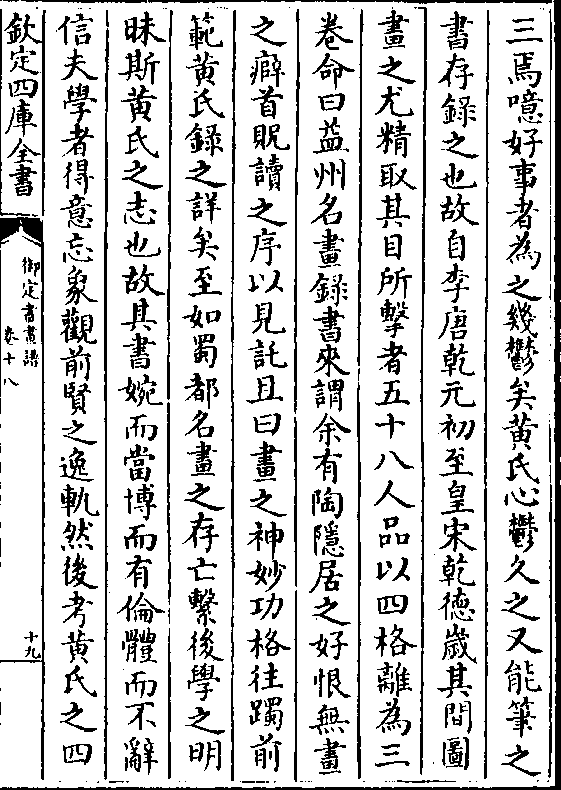 三焉噫好事者為之幾鬱矣黄氏心鬱久之又能筆之
書存錄之也故自李唐乾元初至皇宋乾徳嵗其間圖
畫之尤精取其目所擊者五十八人品以四格離為三
卷命曰益州名畫錄書來謂余有陶隱居之好恨無畫
之癖首貺讀之序以見託且曰畫之神妙功格往躅前
範黄氏錄之詳矣至如蜀都名畫之存亡繫後學之明
昧斯黄氏之志也故其書婉而當博而有倫體而不辭
信夫學者得意忘象觀前賢之逸軌然後考黄氏之四
欽定四庫全書
御定書畫譜
卷十八
十九